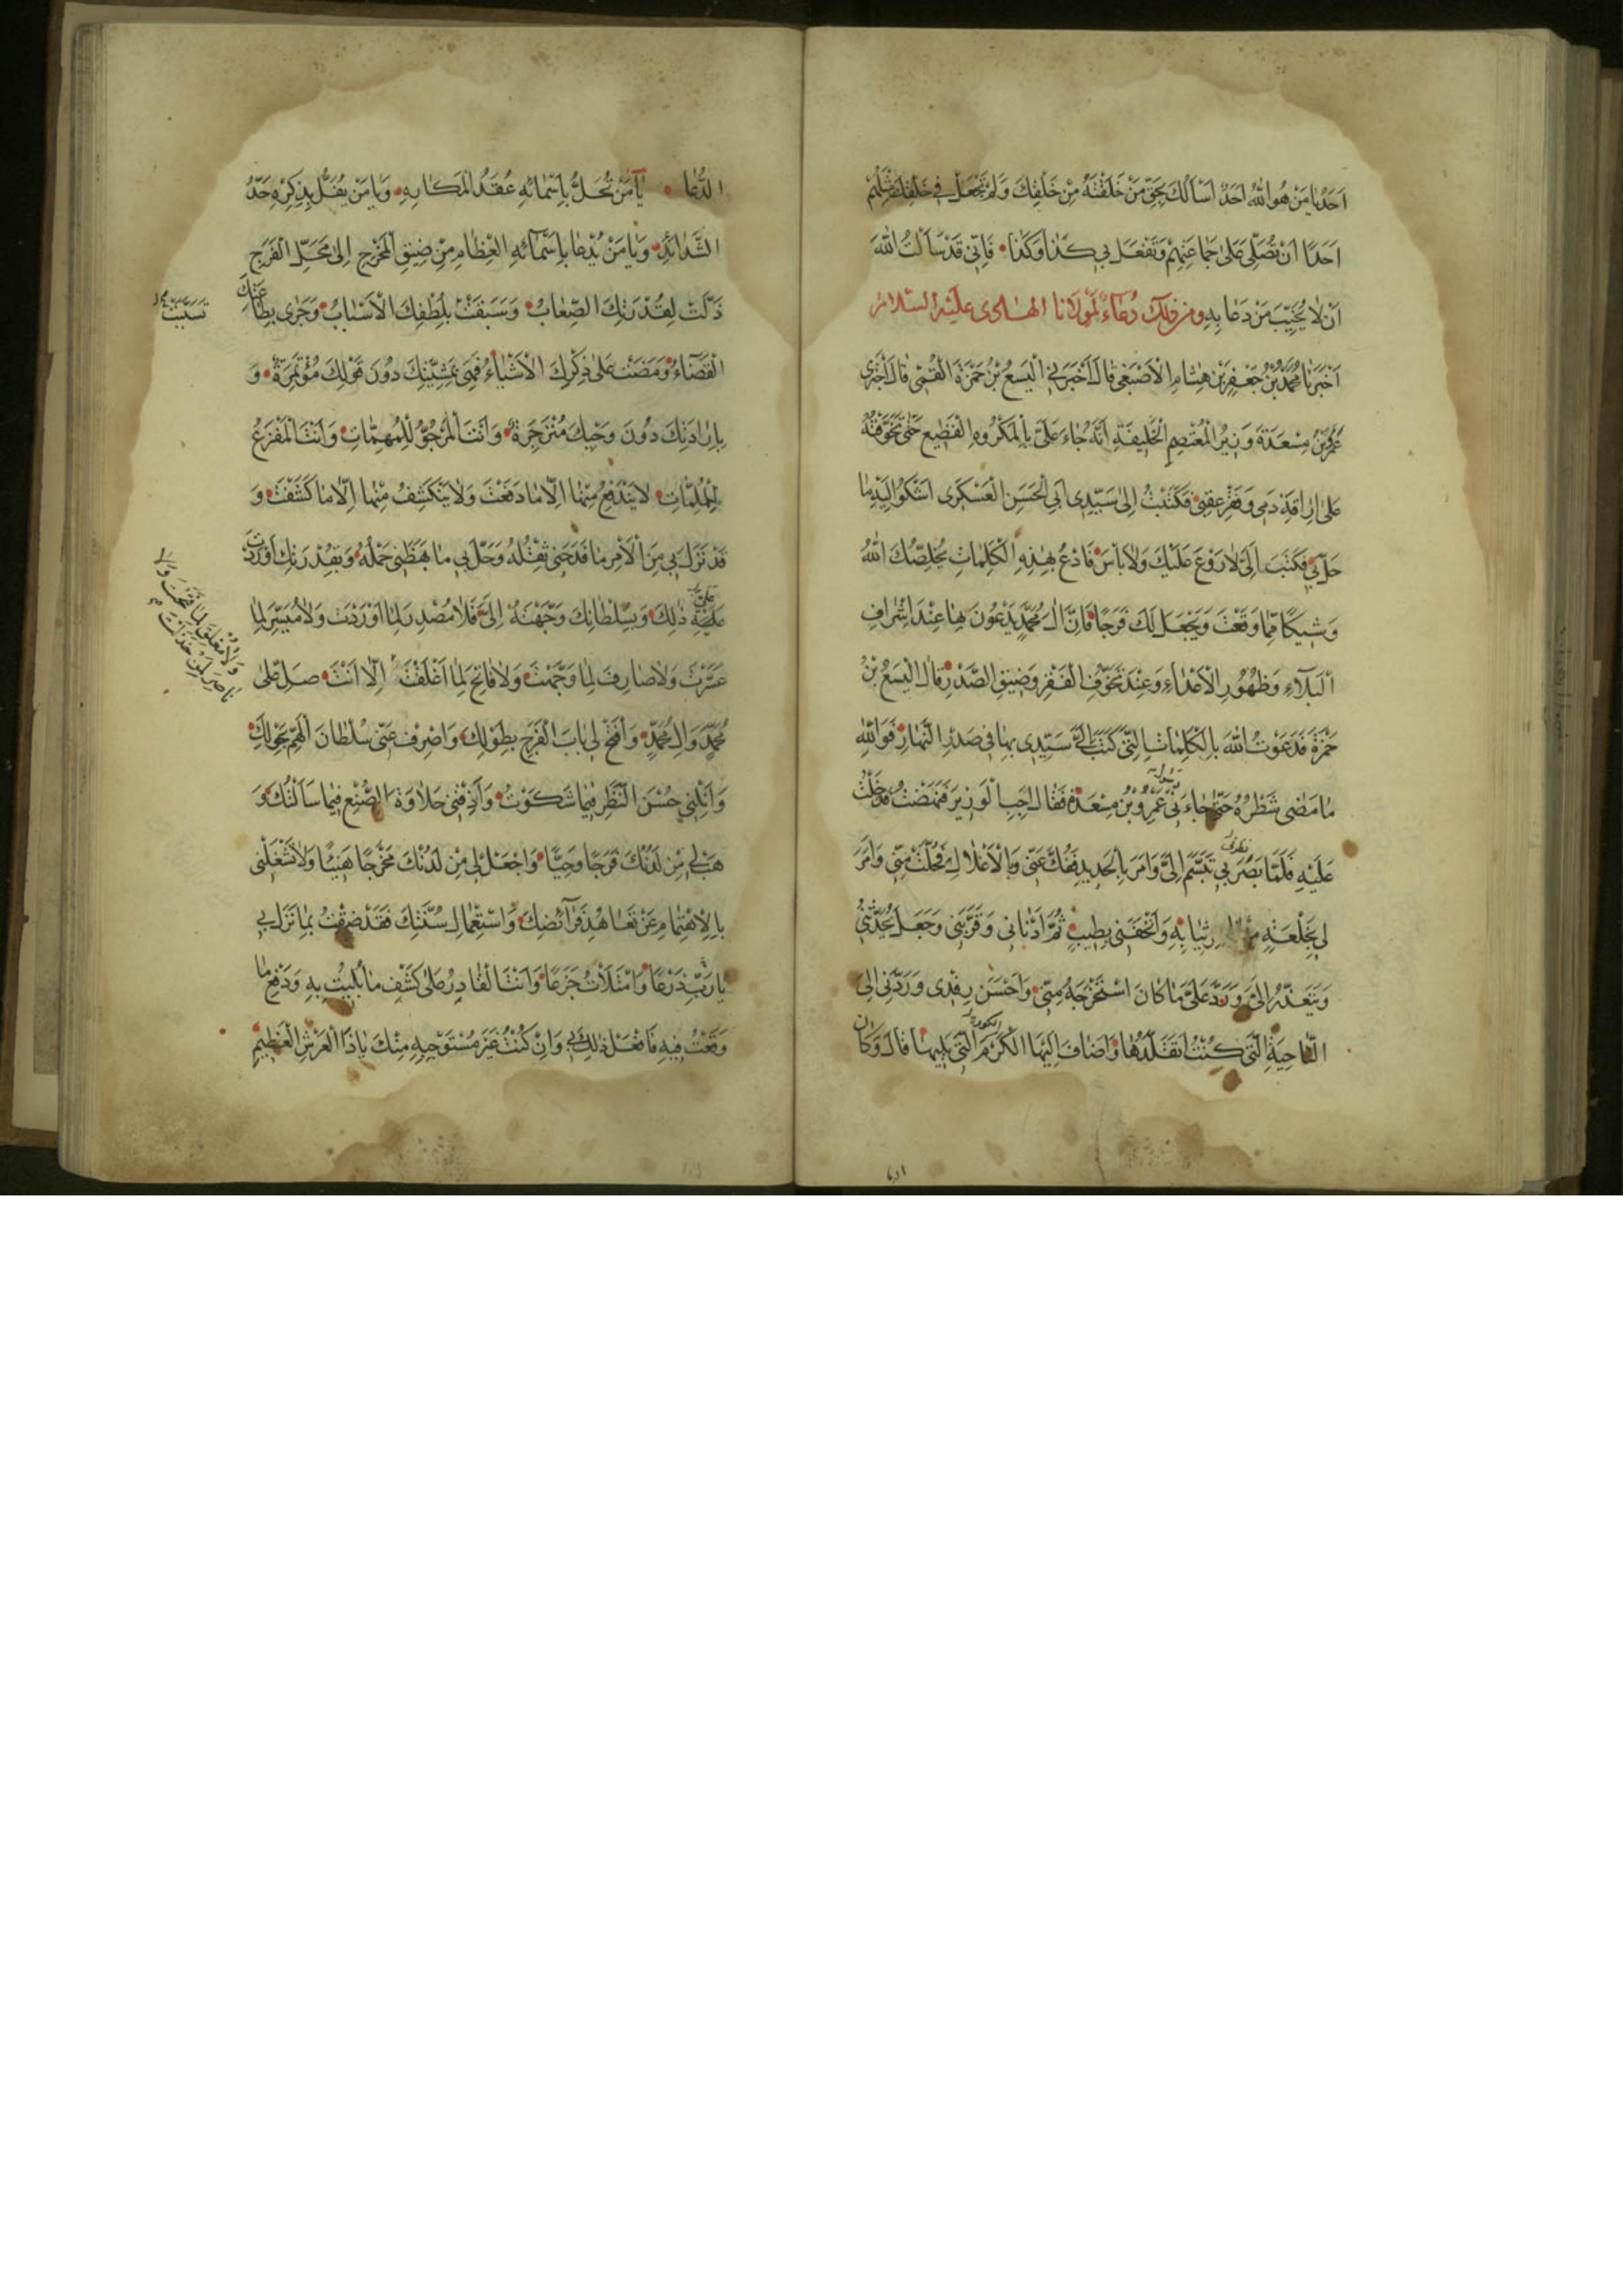 اَحَدُ يا مَنْ هُوَ اللّٰهُ اَحَدٌ اَسْاَلُكَ بِحَقِّ مَنْ خَلَقْتَهُ مِنْ خَلْقِكَ وَلَمْ تَجْعَلْ في خَلْقِكَ مِثْلَهُمْ
اَحَدًا اَنْ تُصَلِّىَ عَلىٰ جَماعَتِهِمْ وَتَفْعَلَ بي كَذا وَكَذا فَاِنّي قَدْ سَاَلْتُ اللّٰهَ
اَنْ لا يُخَيِّبَ مَنْ دَعا بِهِ ومن ذلك دُعاءٌ لمولانا الهادى عليه السلام
اَخْبَرَنا مُحَمَّدُ بْنُ جَعْفَرِ بْنِ هِشامِ الْاَصْبَغى قالَ اَخْبَرَني الْيَسَعُ بْنُ حَمْزَةَ الْقُمّى قالَ اَخْبَرَنى
عَمْرُو بْنُ مِسْعَدَةَ وَزيرُ الْمُعْتَصِمِ الْخَليفَةِ اَنَّهُ جاءَ عَلَىَّ بِالْمَكْرُوهِ الْفَضيعِ حَتّىٰ تَخَوَّفْتُهُ
عَلىٰ اِراقَةِ دَمى وَفَقْرِ عَقِبى فَكَتَبْتُ اِلىٰ سَيِّدى اَبى الْحَسَنِ الْعَسْكَرى اَشْكُو اِلَيْهِ ما
حَلَّ بى فَكَتَبَ اِلَىَّ لا رَوْعَ عَلَيْكَ وَلا بَأْسَ فَادْعُ بِهٰذِهِ الْكَلِماتِ يُخَلِّصُكَ اللّٰهُ
وَشيكًا مِمّا وَقَعْتَ وَيَجْعَلْ لَكَ فَرَجًا فَاِنَّ اٰلَ مُحَمَّدٍ يَدْعُونَ بِها عِنْدَ اِشْرافِ
الْبَلاٰءِ وَظُهُورِ الْاَعْداءِ وَعِنْدَ تَخَوُّفِ الْفَقْرِ وَضيقِ الصَّدْرِ قالَ الْيَسَعُ بْنُ
حَمْزَةَ فَدَعَوْتُ اللّٰهَ بِالْكَلِماتِ الَّتى كَتَبَ اِلَىَّ سَيِّدى بِها فى صَدْرِ النَّهارِ فَوَاللّٰهِ
ما مَضىٰ شَطْرُهُ حَتّىٰ جاءَنى رسول عَمْرِو بْنِ مِسْعَدَةَ فَقالَ اَجِبِ الْوَزيرَ فَنَهَضْتُ وَدَخَلْتُ
عَلَيْهِ فَلَمّا بَصُرَ بى تَبَسَّمَ اِلَىَّ وَاَمَرَ بِالْحَديدِ فَفُكَّ عَنّى وَبِالْاَغْلالِ فَحُلَّتْ مِنّى وَاَمَرَ
لى بِخِلْعَةٍ مِنْ ثِيابِهِ وَاَتْحَفَنى بِطيبٍ ثُمَّ اَدْنانى وَقَرَّبَنى وَجَعَلَ يُحَدِّثُنى
وَيَتَعَذَّرُ اِلَىَّ وَرَدَّ عَلَىَّ ما كانَ اسْتَخْرَجَهُ مِنّى وَاَحْسَنَ رِفْدى وَرَدَّنى اِلىٰ
النّاحِيَةِ الَّتى كُنْتُ اَتَقَلَّدُها وَاَضافَ اِلَيْهَا الْكُورَةَ الَّتى تَليها قالَ وَكانَ
الدُّعا يا مَنْ تُحَلُّ بِاَسْمائِهِ عُقَدُ الْمَكارِهِ وَيا مَنْ يُفَلُّ بِذِكْرِهِ حَدُّ
الشَّدائِدِ وَيا مَنْ يُدْعا بِاَسْمائِهِ الْعِظامِ مِنْ ضيقِ الْمَخْرَجِ اِلىٰ مَحَلِّ الْفَرَجِ
ذَلَّتْ لِقُدْرَتِكَ الصِّعابُ وَسَبَقَتْ بِلُطْفِكَ الْاَسْبابُ وَجَرىٰ بِطاعَتِكَ
تَسَبَّبَتْ
الْقَضاءُ وَمَضَتْ عَلىٰ ذِكْرِكَ الْاَشْياءُ فَهِىَ بِمَشِيَّتِكَ دُونَ قَوْلِكَ مُؤْتَمِرَةٌ وَ
بِاِرادَتِكَ دُونَ وَحْيِكَ مُنْزَجِرَةٌ وَاَنْتَ الْمَرْجُوُّ لِلْمُهِمّاتِ وَاَنْتَ الْمَفْزَعُ
لِلْمُلِمّاتِ لا يَنْدَفِعُ مِنْها اِلّا ما دَفَعْتَ وَلا يَنْكَشِفُ مِنْها اِلّا ما كَشَفْتَ وَ
قَدْ نَزَلَ بى مِنَ الْاَمْرِ ما فَدَحَنى ثِقْلُهُ وَحَلَّ بى ما بَهَظَنى حَمْلُهُ وَبِقُدْرَتِكَ اَوْرَدْتَ
عَلَىَّ ذٰلِكَ وَبِسُلْطانِكَ وَجَّهْتَهُ اِلَىَّ فَلا مُصْدِرَ لِما اَوْرَدْتَ وَلا مُيَسِّرَ لِما
عَسَّرْتَ وَلا صارِفَ لِما وَجَّهْتَ وَلا فاتِحَ لِما اَغْلَقْتَ اِلّا اَنْتَ صَلِّ عَلىٰ
وَلا مُغْلِقَ لِما فَتَحْتَ وَلا
ناصِرَ لِمَنْ خَذَلْتَ
مُحَمَّدٍ وَاٰلِ مُحَمَّدٍ وَافْتَحْ لى بابَ الْفَرَجِ بِطَوْلِكَ وَاصْرِفْ عَنّى سُلْطانَ الْهَمِّ بِحَوْلِكَ
وَاَنِلْنى حُسْنَ النَّظَرِ فيما شَكَوْتُ وَاَذِقْنى حَلاوَةَ الصُّنْعِ فيما سَاَلْتُكَ وَ
هَبْ لى مِنْ لَدُنْكَ فَرَجًا وَحِيًّا وَاجْعَلْ لى مِنْ لَدُنْكَ مَخْرَجًا هَنيئًا وَلا تَشْغَلْنى
بِالْاِهْتِمامِ عَنْ تَعاهُدِ فَرائِضِكَ وَاسْتِعْمالِ سُنَّتِكَ فَقَدْ ضِقْتُ بِما نَزَلَ بى
يا رَبِّ ذَرْعًا وَامْتَلَأْتُ جَزَعًا وَاَنْتَ الْقادِرُ عَلىٰ كَشْفِ ما بُليتُ بِهِ وَدَفْعِ ما
وَقَعْتُ فيهِ فَافْعَلْ ذٰلِكَ بى وَاِنْ كُنْتُ غَيْرَ مُسْتَوْجِبِهِ مِنْكَ يا ذَا الْعَرْشِ الْعَظيمِ